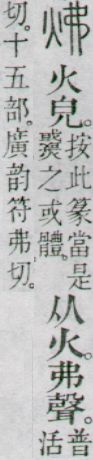 炥火皃。按此篆當是之或體。从火。弗聲。普活
切。十五部。廣韵符弗切。